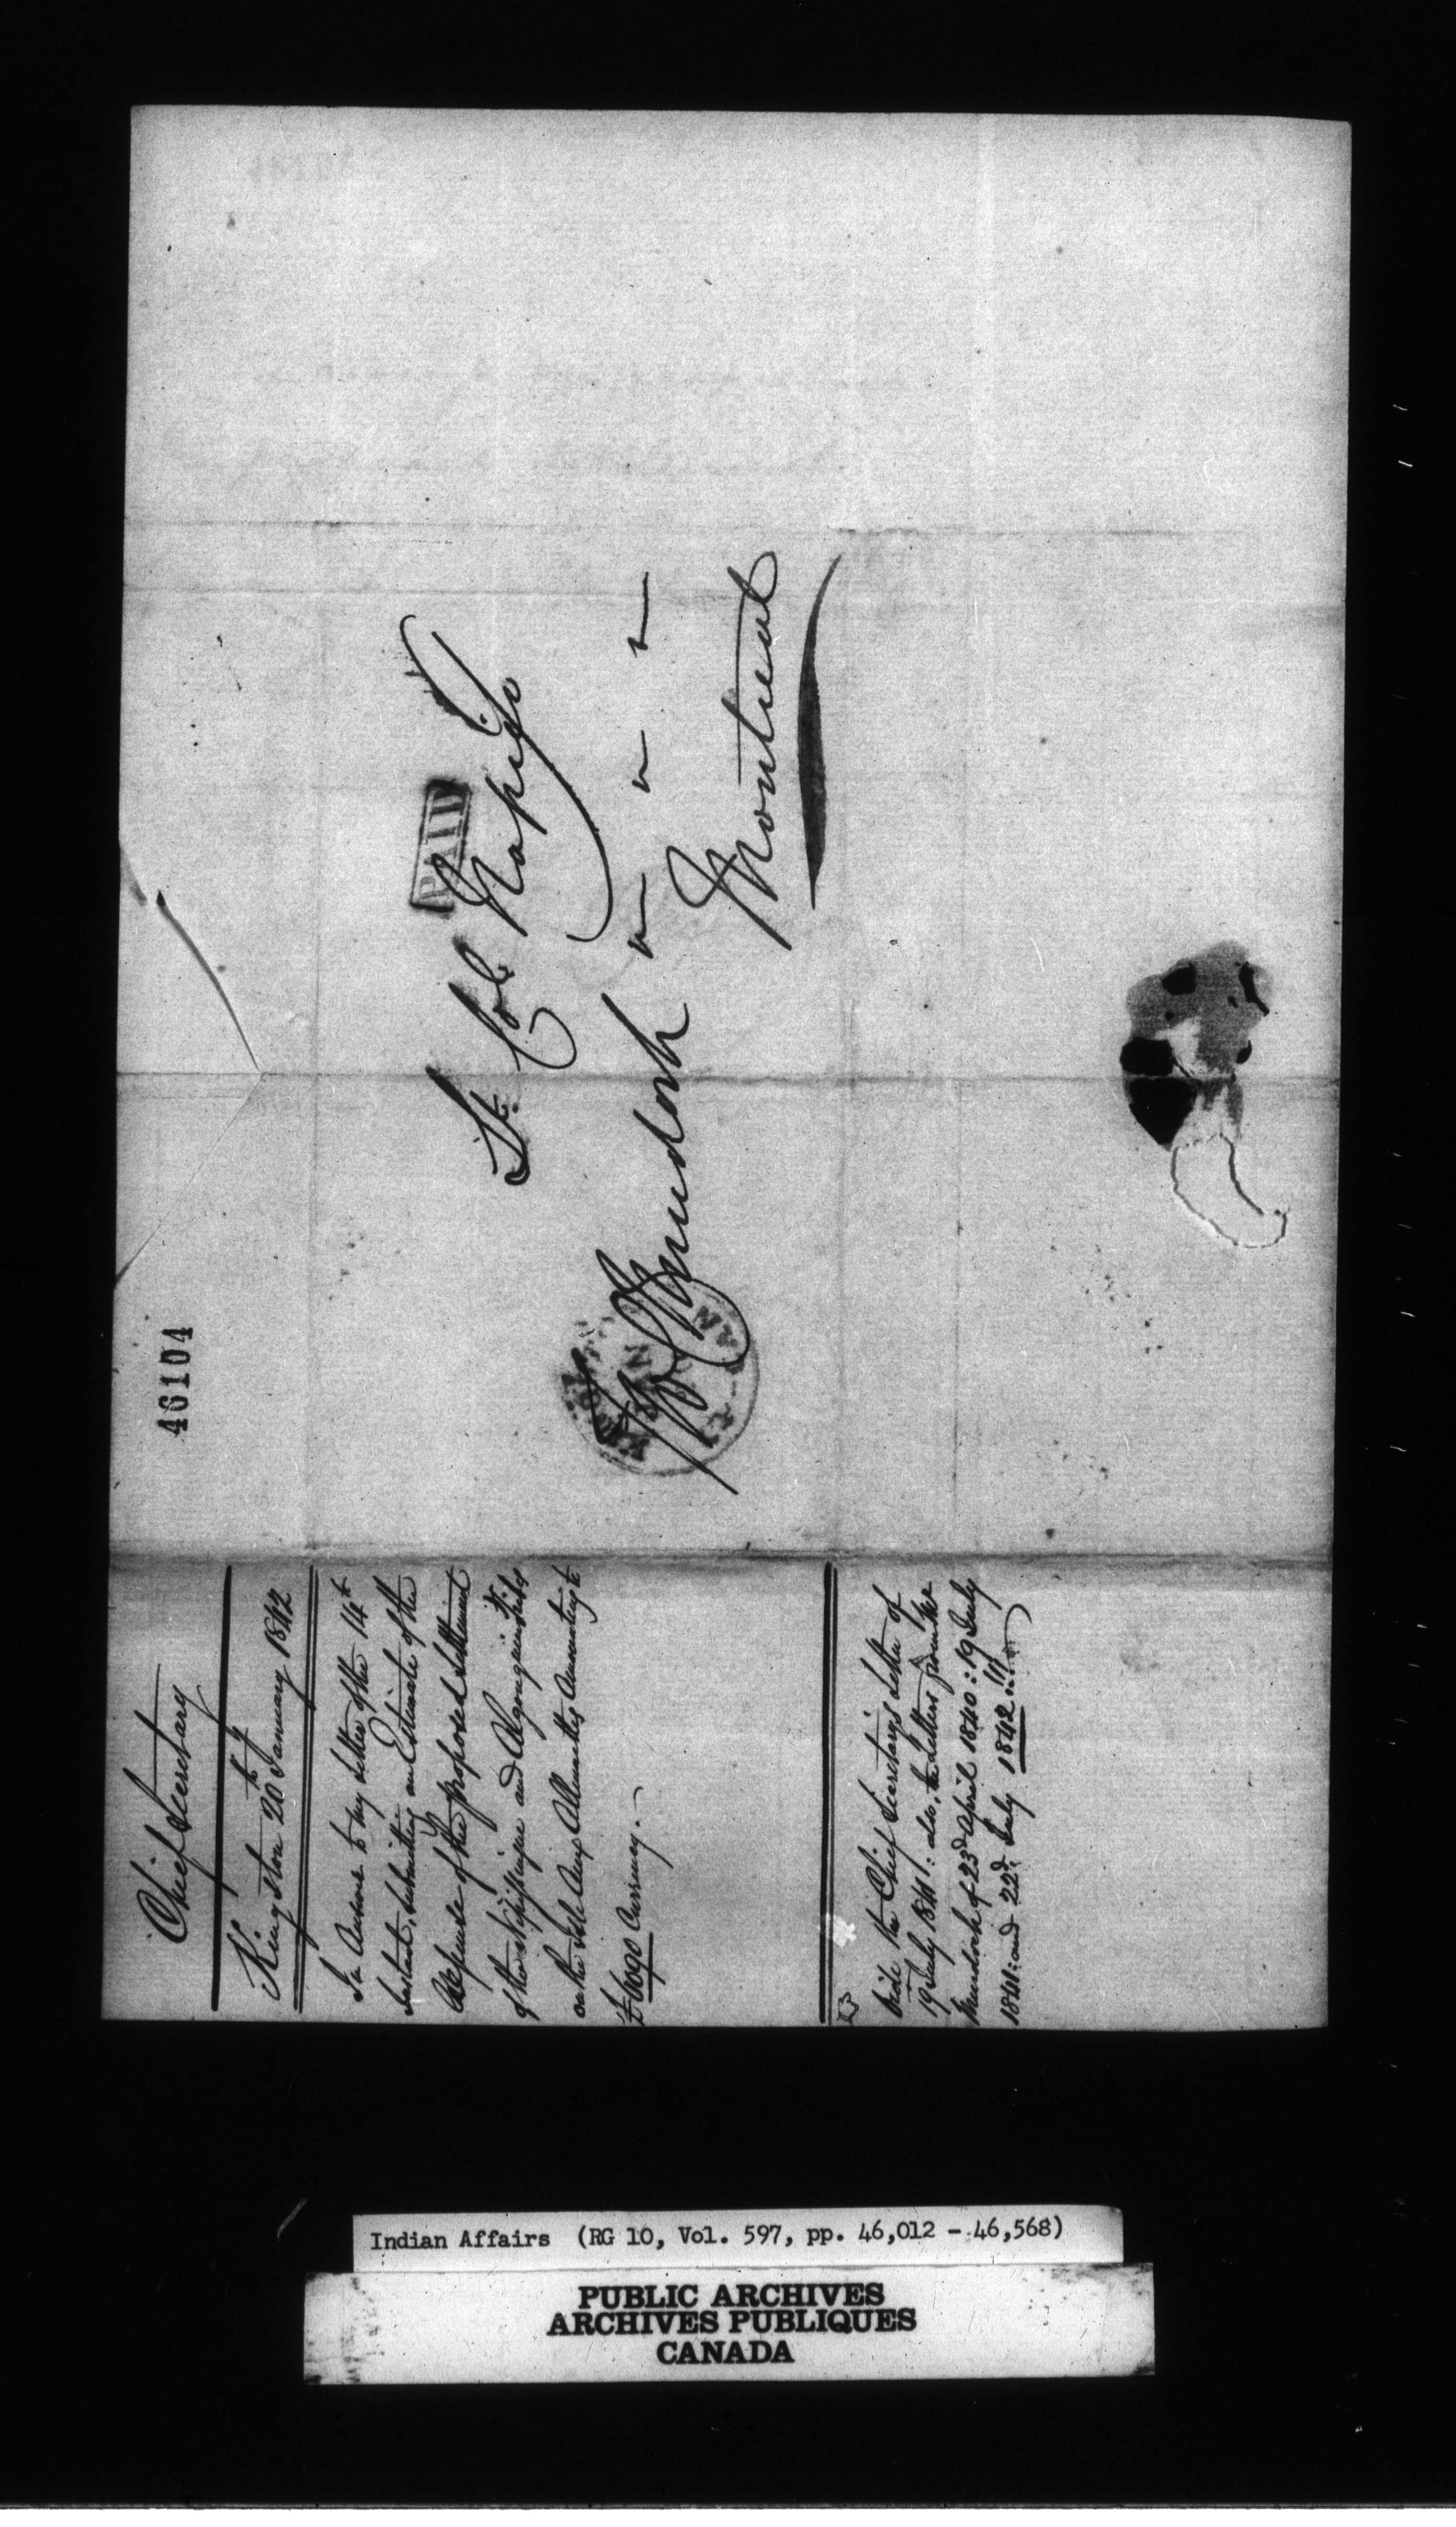 46104
Chief Secretary
Kingston 20th January 1842
In Answer to my letter of the 14th
Instant, submitting an Estimate of the
Expense of the proposed Settlement
of the Nipissingue and Algonquin Tribes
on the Isle Aux Allumettes Amounting to
Currency.
Vide the Chief Secretarys letter of
19 July 1841: also, the letters from Mr
Murdoch of 23d April 1840: 19 July
1841: and 22d July 1842 !!!
PAID
Lt Col Napier
Murdoch
Montreal
Indian Affairs (RG 10, Vol. 597, pp. 46,012 - 46,568)
PUBLIC ARCHIVES
ARCHIVES PUBLIQUES
CANADA